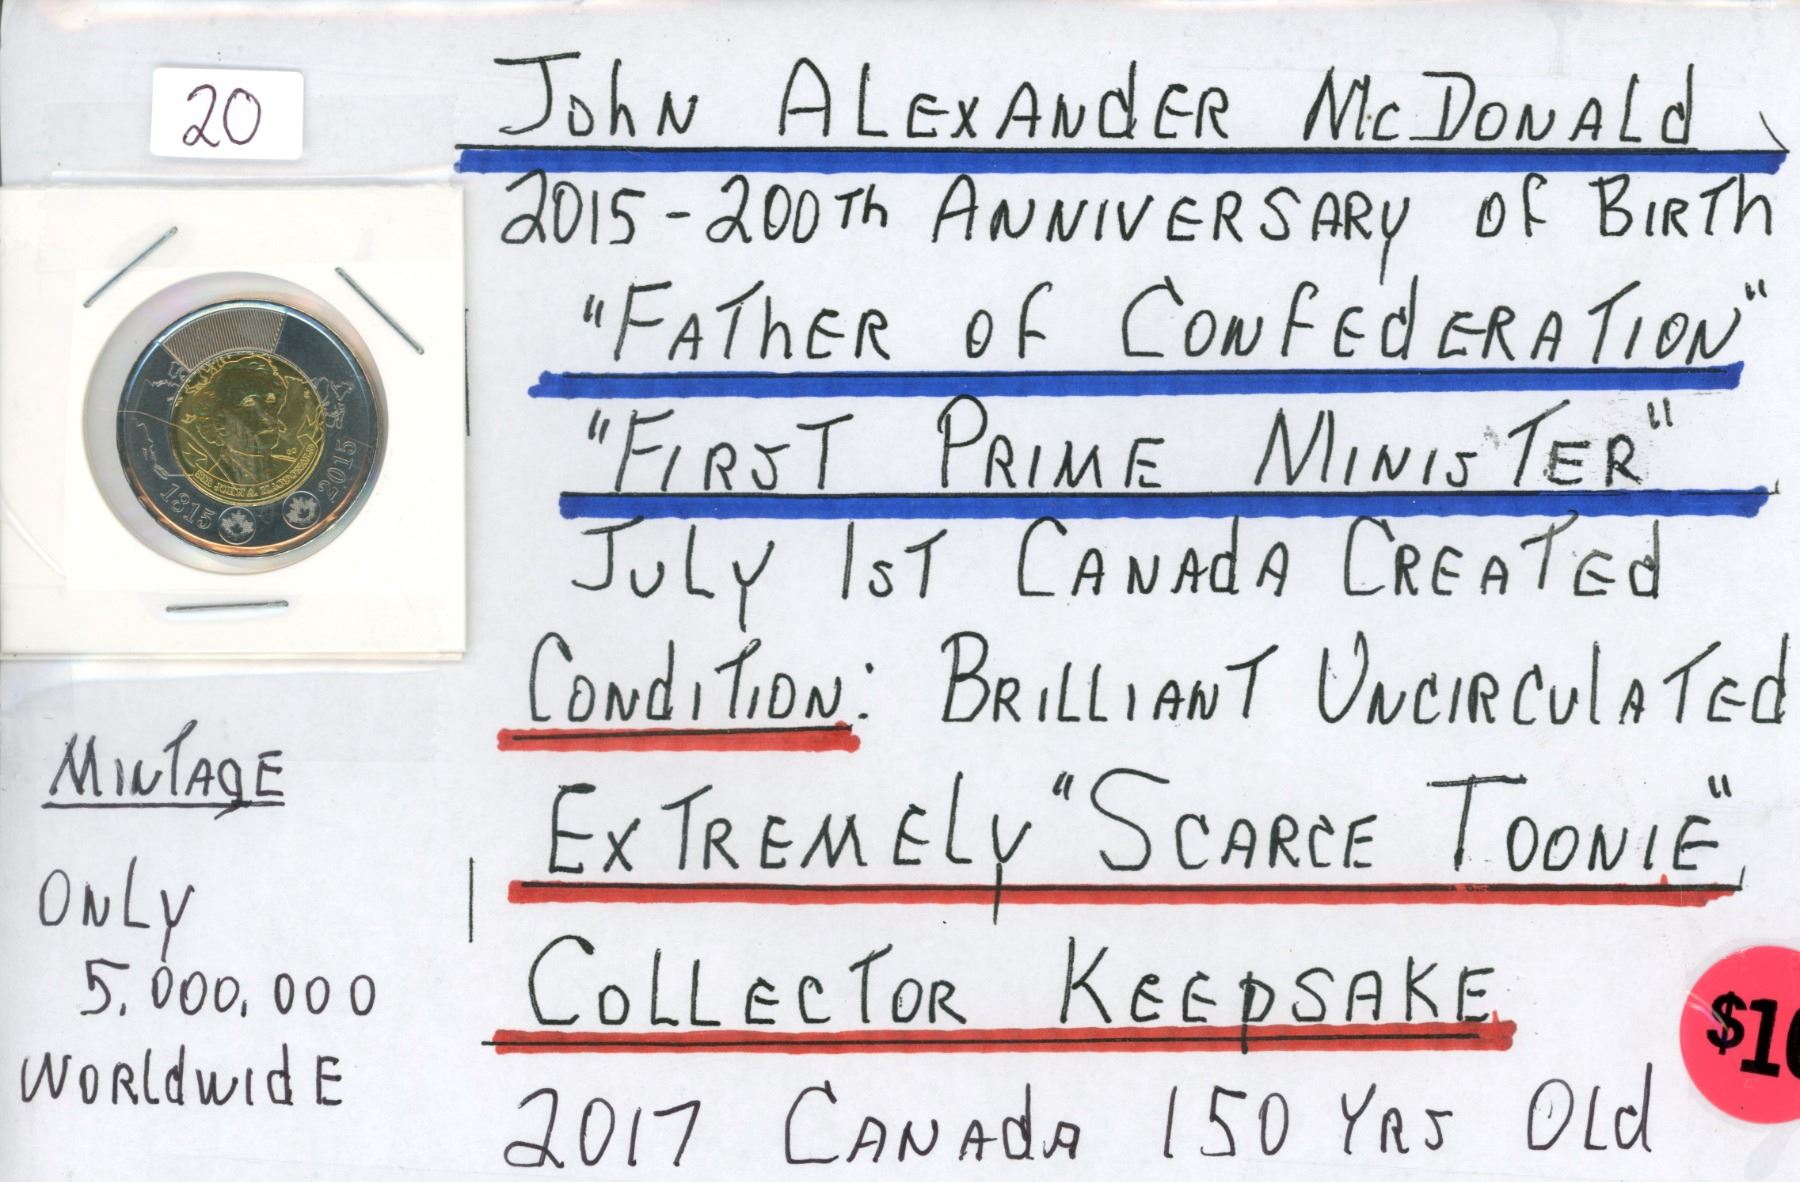 20
John Alexander McDonald
2015-200th Anniversary of Birth
"Father of Confederation"
"First Prime Minister"
July 1st Canada Created
Condition: Brilliant Uncirculated
Extremely "Scarce Toonie"
Collector Keepsake
2017 Canada 150 Yrs Old
SIR JOHN A. MACDONALD
1815
2015
Mintage
Only
5,000,000
Worldwide